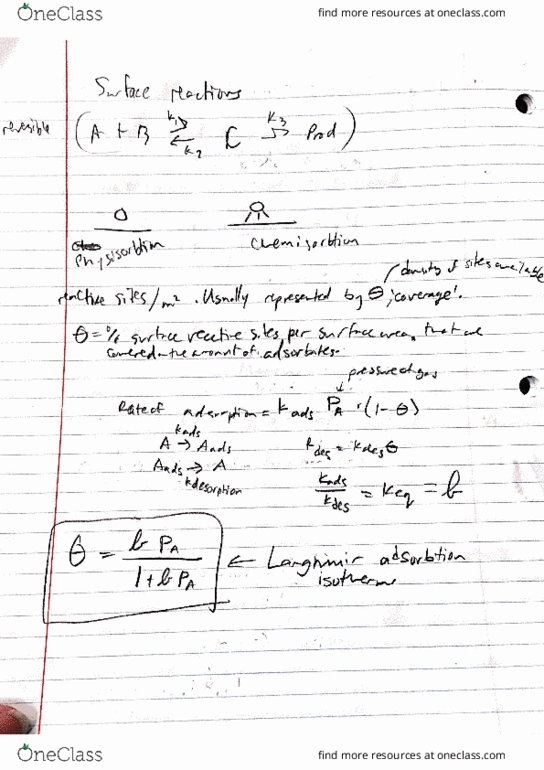 OneClass find more resources at oneclass.com
Surface reactions
reversible (A + B k₁ ⇌ k₂ C k₃ → Prod)
Physisorbtion Chemisorbtion
density of sites available
reactive sites/m². Usually represented by θ, 'coverage'.
θ = % surface reactive sites, per surface area, that are
covered the amount of adsorbates.
pressure of gas
Rate of adsorption = k ads P_A · (1 - θ)
k ads
A → A ads r des = k des θ
A ads → A
k desorption k ads / k des = K eq = b
θ = b P_A / 1 + b P_A ← Langhmir adsorbtion
isotherm
OneClass find more resources at oneclass.com